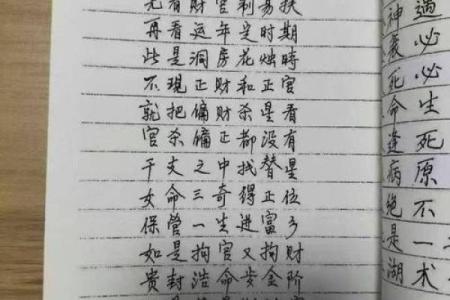 先看财官利多扶
再看运年定时期
此是洞房花烛時
不現正财和正官
就把偏财杀星看
官杀偏正都没有
干支之中找替星
女命三奇得正位
保管一生进富乡
如是拘官又拘财
贵封浩命步金阶
神衰死命逢病绝是湖
過必必生死原不一术